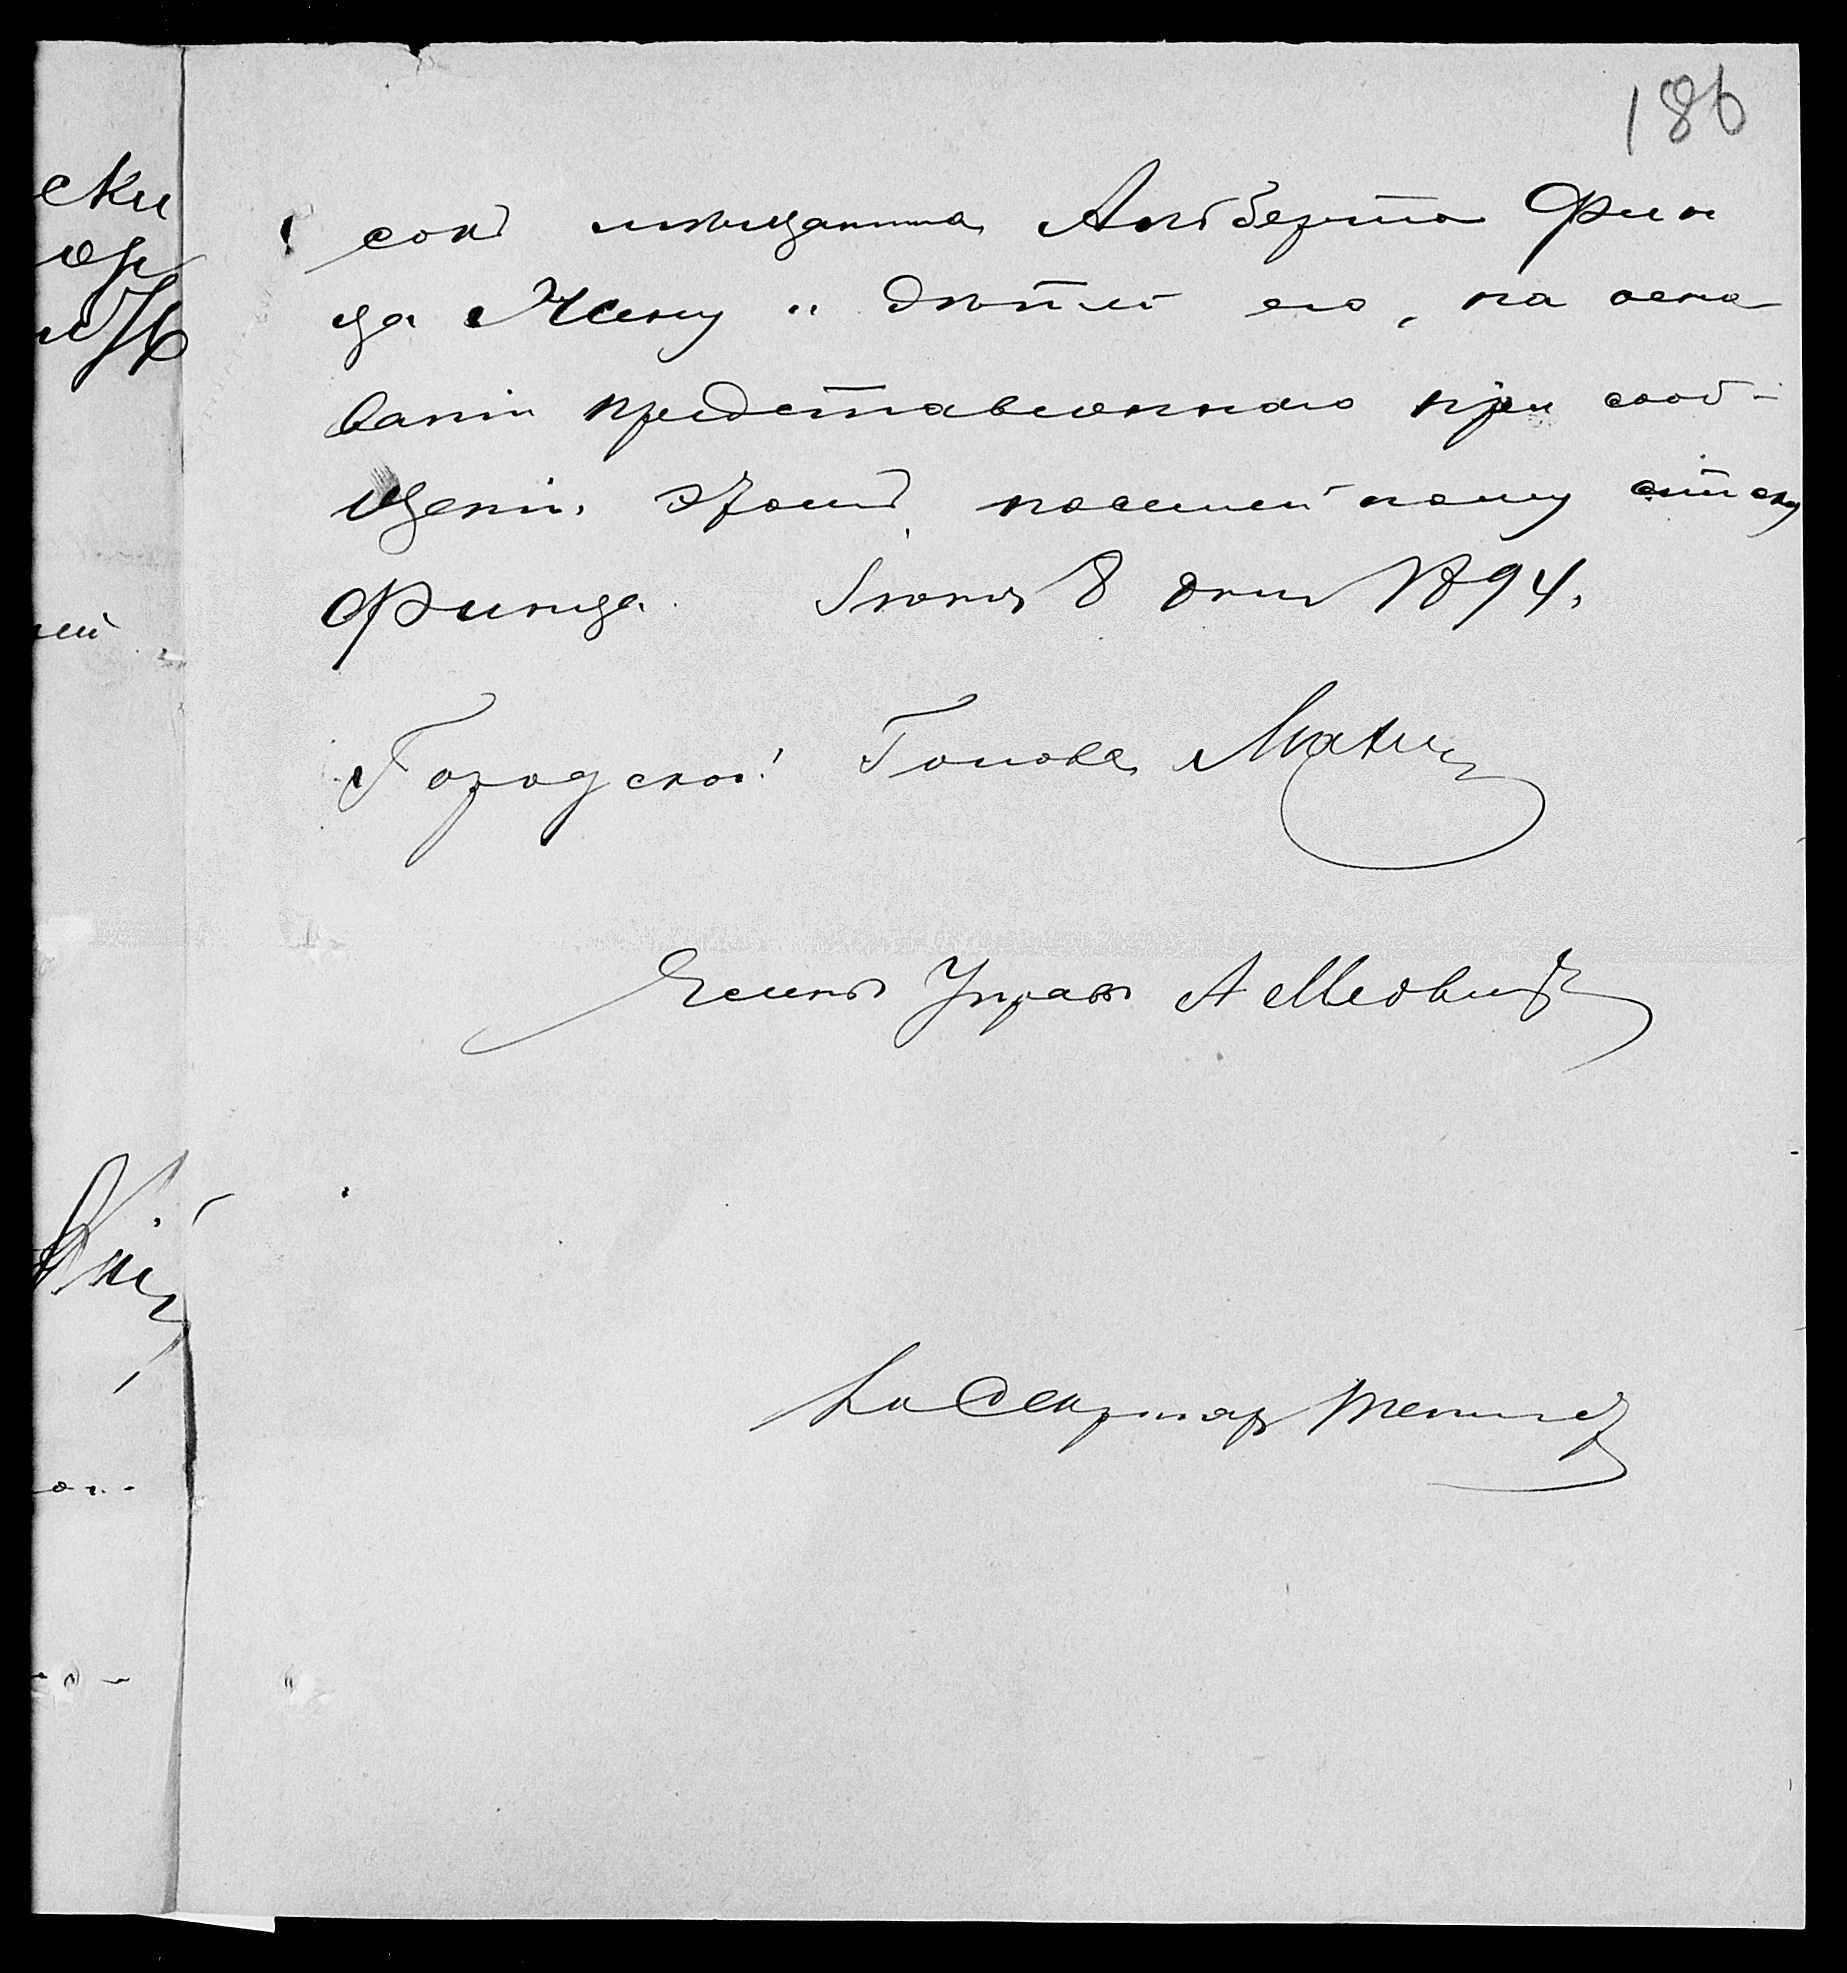 186
сокъ мѣщанина Альберта Фин
ца жену и дѣтей его, на осно
ваніи представленнаго при сооб-
щеніи этомъ посемейному списку
Финца. Іюня 8 дня 1894.
Городской Голова
Членъ Управы А
Секретарь
ски
ей